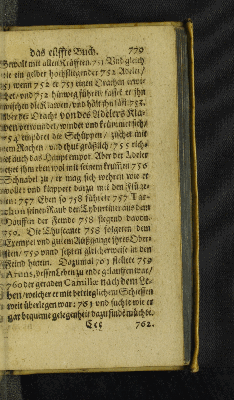 das eilffte Buch. 770
Gewalt mit allen Kräfften. 751 Und gleich
wie ein gelber hochfliegender 752 Adeler/
751 wenn 752 er 751 einen Drachen erwi
schet/ und 752 hinweg führet: fasset er ihn
zwischen die Klawen/ und hält ihn fäst 753.
Aber der Drache von des Adelers Kla-
wen verwundet/ windet und krümmet sich/
754 sträubet die Schüppen/ zischet mit
dem Rachen und thut gräßlich/ 755 rich-
tet auch das Haupt empor. Aber der Adeler
setzet ihm eben wol mit seinem krummen 756
Schnabel zu/ er mag sich wehren wie er
wolle: und kläppert darzu mit den Flüge-
len: 757 Eben so 758 führete 757 Tar-
chon seinen Raub der Tyburtiner aus dem
Hauffen der Feinde 758 siegend davon.
750. Die Thuscaner 758 folgeten dem
Exempel und gutem Außgange ihres Ober-
sten/ 759 und setzten gleicherweise in den
Feind hinein. Dazumal 761 stellete 759
Aruns, dessen Leben zu ende gelauffen war/
760 der geraden Camillæ nach dem Le-
ben/ welcher er mit betrieglichem Schiessen
weit überlegen war: 761 und suchte wie er
gar bequeme gelegenheit dazu finden möchte.
762.